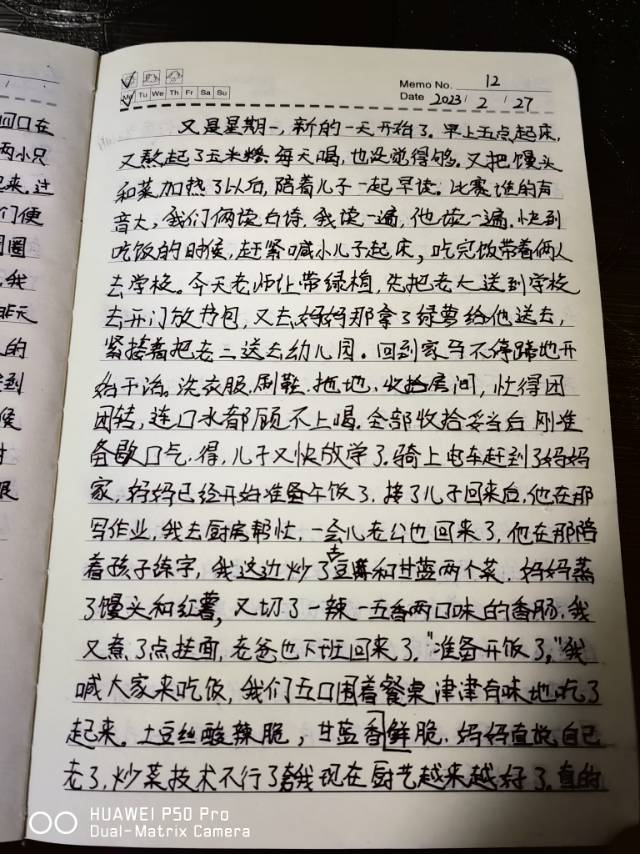 Memo No. 12
Mo Tu We Th Fr Sa Su
Date 2023 / 2 / 27
又是星期一,新的一天开始了。早上五点起床,
又熬起了玉米糁,每天喝,也没觉得够。又把馒头
和菜加热了以后,陪着儿子一起早读。比赛谁的声
音大,我们俩读古诗,我读一遍,他读一遍.快到
吃饭的时候,赶紧喊小儿子起床,吃完饭带着俩人
去学校。今天老师让带绿植,先把老大送到学校
去开门放书包,又去妈妈那拿了绿萝给他送去,
紧接着把老二送去幼儿园。回到家马不停蹄地开
始干活.洗衣服.刷鞋.拖地.收拾房间,忙得团
团转,连口水都顾不上喝.全部收拾妥当后刚准
备歇口气.得,儿子又快放学了.骑上电车赶到了妈妈
家,妈妈已经开始准备午饭了.接了儿子回来后,他在那
写作业,我去厨房帮忙,一会儿老公也回来了,他在那陪
着孩子练字,我这边炒了土豆丝和甘蓝两个菜.妈妈蒸
了馒头和红薯,又切了一辣一五香两口味的香肠.我
又煮了点挂面,老爸也下班回来了."准备开饭了,"我
喊大家来吃饭,我们五口围着餐桌津津有味地吃了
起来。土豆丝酸辣脆,甘蓝香鲜脆.妈妈直说自己
老了,炒菜技术不行了夸我现在厨艺越来越好了.真的
回口在
两小只
起来,过
们便
我
昨天
的
到
候
HUAWEI P50 Pro
Dual-Matrix Camera